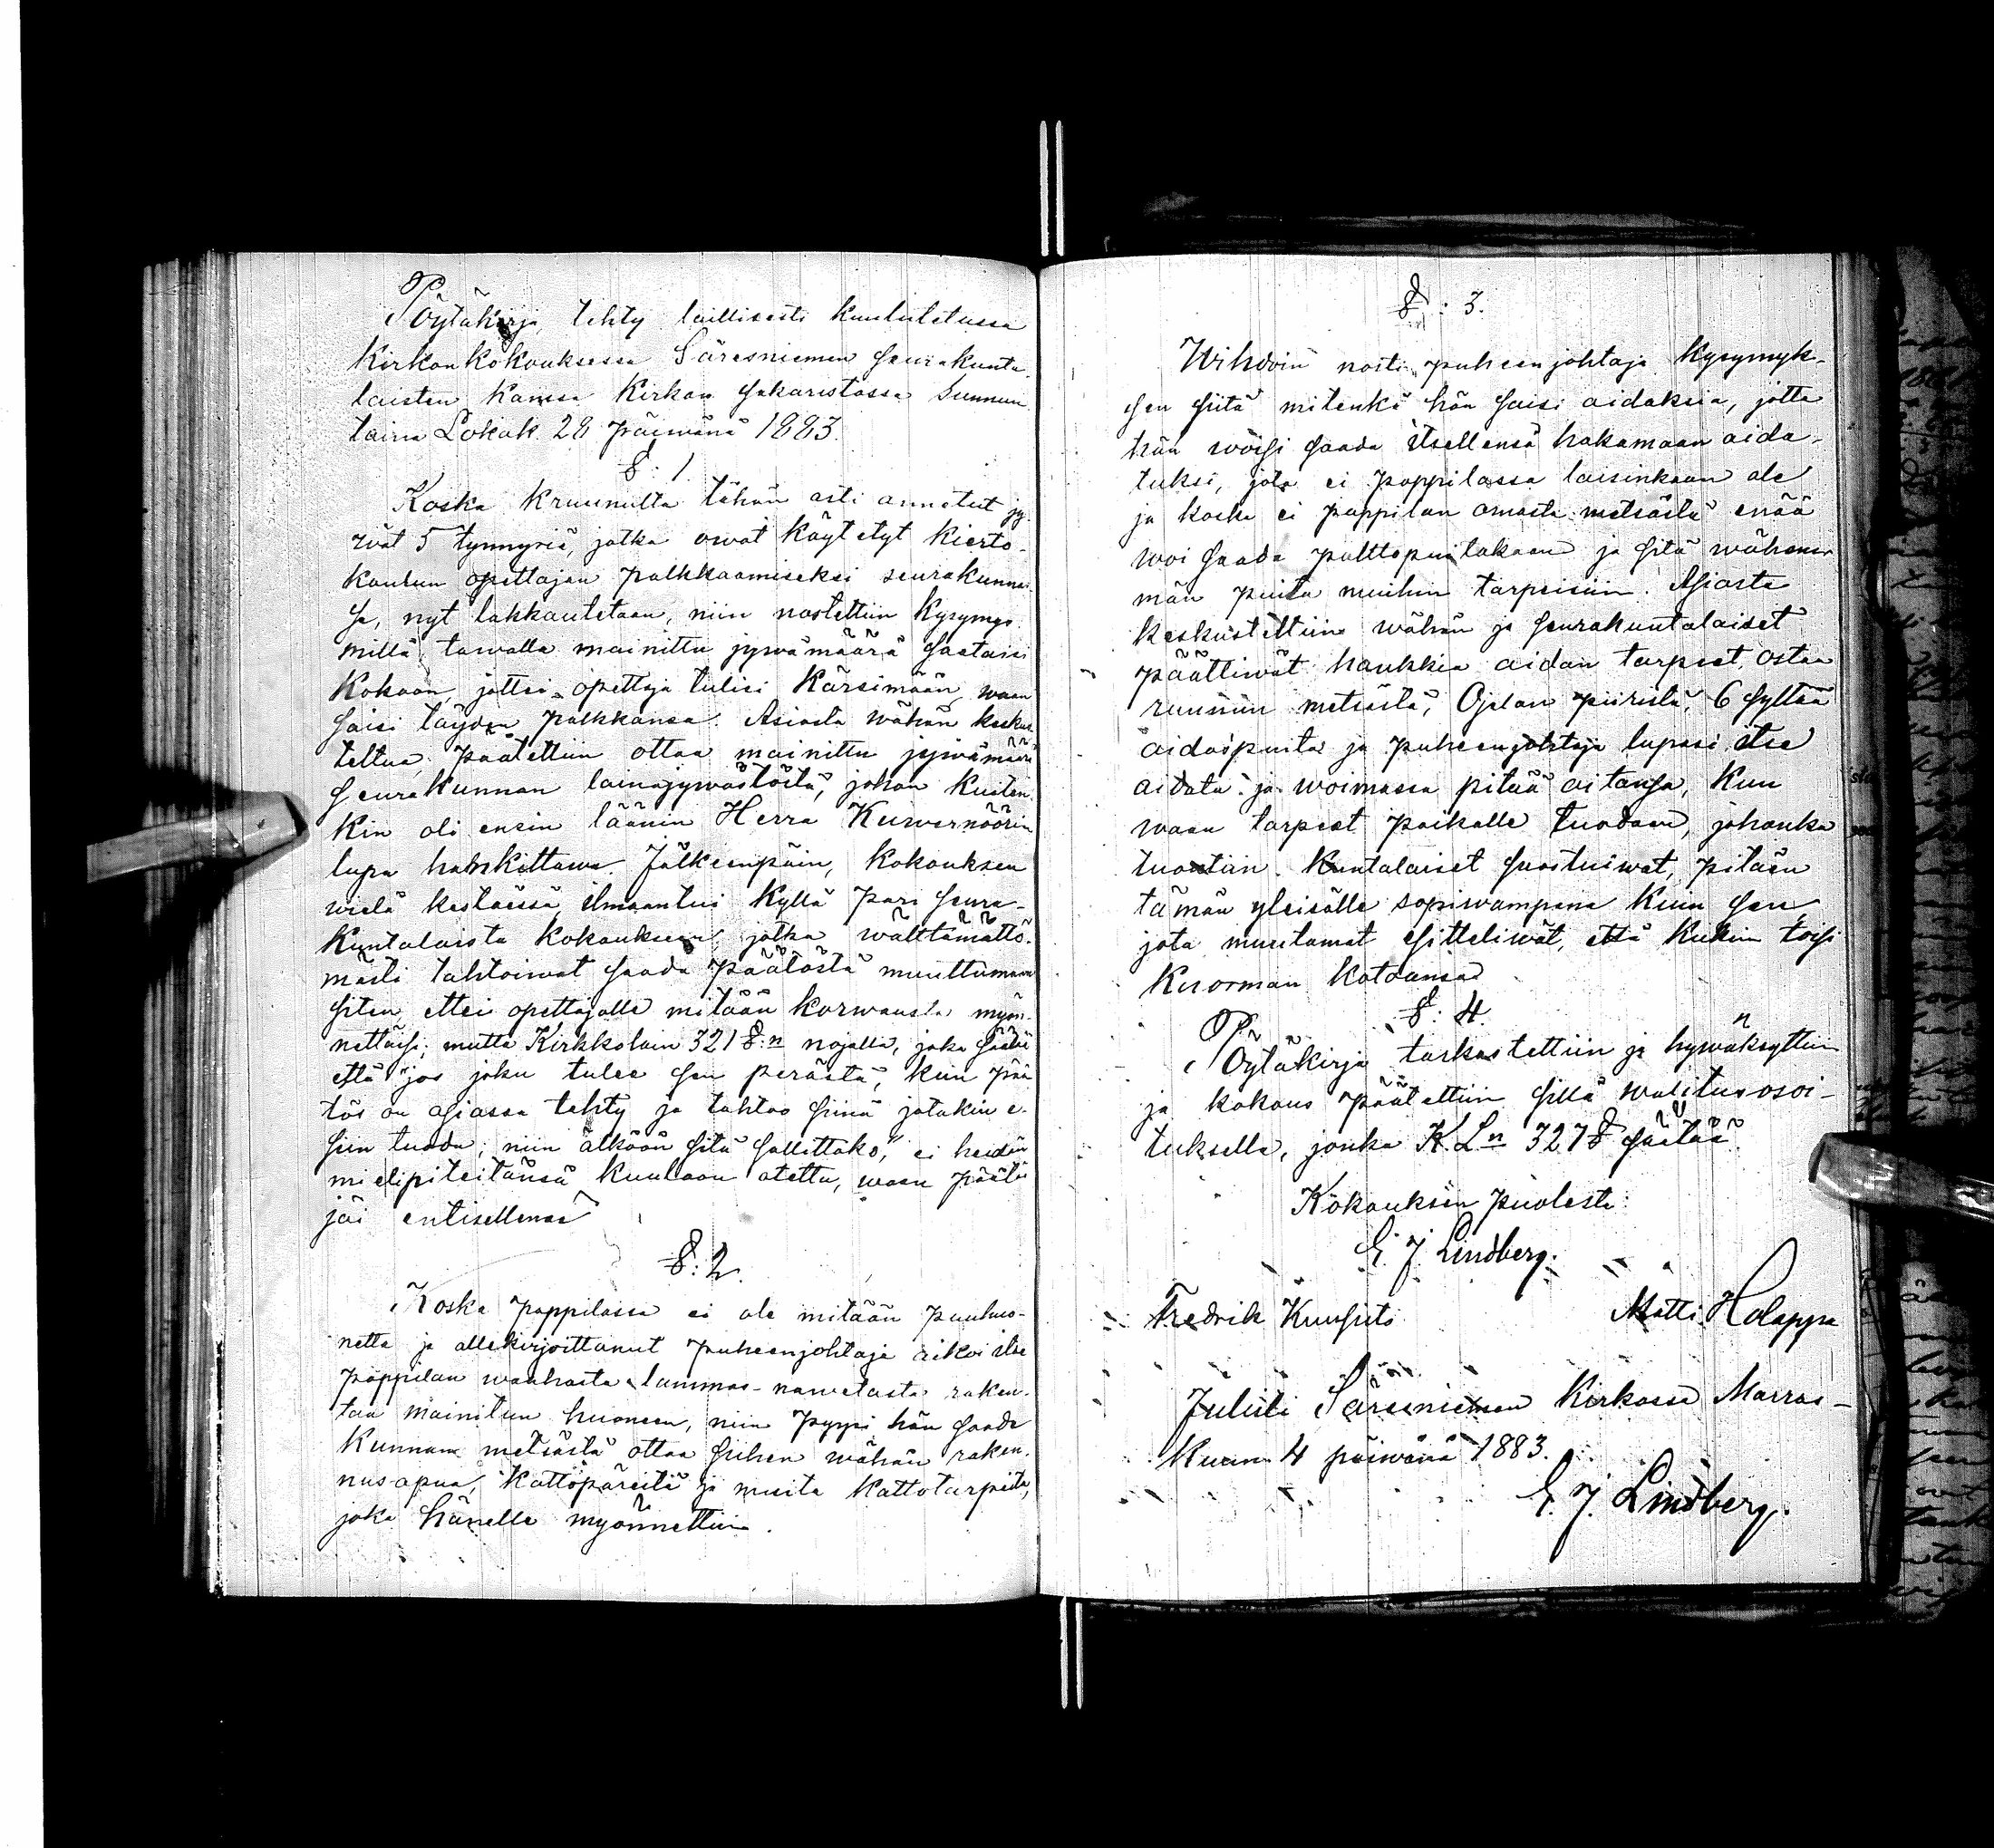 Pöytäkirja, tehty laillisesti kuulutetussa
Kirkonkokouksessa Säresniemen seurakunta-
laisten kanssa Kirkon sakaristossa Sunnun
taina Lokak. 28 päiwänä 1883.
§: 1.
Koska kruunulta tähän asti annetut jy-
wät 5 tynnyriä, jotka owat käytetyt kierto-
koulun opettajan palkkaamiseksi seurakunnas-
sa, nyt lakkautetaan, niin nostettiin kysymys
millä tawalla mainittu jywämäärä saataisi
kokoon, jottei opettaja tulisi kärsimään, waan
saisi täyden palkkansa. Asiasta wähän keskus
teltua, päätettiin ottaa mainittu jywämäärä
seurakunnan lainajywästöstä, johon kuiten-
kin oli ensin läänin Herra Kuwernöörin
lupa hankittawa. Jälkeenpäin, kokouksen
wielä kestäessä ilmaantui kyllä pari seura-
kuntalaista kokoukseen, jotka wälttämättö-
mästi tahtoiwat saada päätöstä muuttumaan
siten, ettei opettajalle mitään korwausta myön-
nettäisi; mutta Kirkkolain 321 §:n nojalla, joka säätää
että "jos joku tulee sen perästä, kun pää
tös on asiassa tehty ja tahtoo siinä jotakin e-
siin tuoda; niin älköön sitä sallittako," ei heidän
mielipiteitänsä kuuloon otettu, waan päätös
jäi entisellensä.
§: 2.
Koska pappilassa ei ole mitään puuhuo-
netta ja allekirjoittanut puheenjohtaja aikoi itse
pappilan wanhasta lammas-nawetasta raken-
taa mainitun huoneen, niin pyysi hän saada
kunnan metsästä ottaa siihen wähän raken-
nus-apua, kattopäreitä ja muita kattotarpeita,
joka hänelle myönnettiin.
§: 3.
Wihdoin nosti puheenjohtaja kysymyk-
sen siitä mitenkä hän saisi aidaksia, jotta
hän woisi saada itsellensä hakamaan aida-
tuksi, jota ei pappilassa laisinkaan ole
ja koska ei pappilan omasta metsästä enää
woi saada polttopuitakaan ja sitä wähem-
män puita muihin tarpeisiin. Asiasta
keskusteltiin wähän ja seurakuntalaiset
päättiwät hankkia aidan tarpeet, ostaa
ruunun metsästä, Ojalan piiristä, 6 syltää
aidaspuita ja puheenjohtaja lupasi itse
aidata ja woimassa pitää aitansa, kun
waan tarpeet paikalle tuodaan, johonka
tuontiin kuntalaiset suostuiwat, pitäen
tämän yleisölle sopiwampana kuin sen,
jota muutamat esitteliwät, että kukin toisi
kuorman kotoansa.
§: 4.
Pöytäkirja tarkastettiin ja hywäksyttiin
ja kokous päätettiin sillä walitusosoi-
tuksella, jonka K.Ln 327 § säätää.
Kokouksen puolesta:
E. J. Lindberg.
Fredrik Kuusisto Matti Holappa
Julisti Säresniemen Kirkossa Marras-
kuun 4 päiwänä 1883.
E. J. Lindberg.